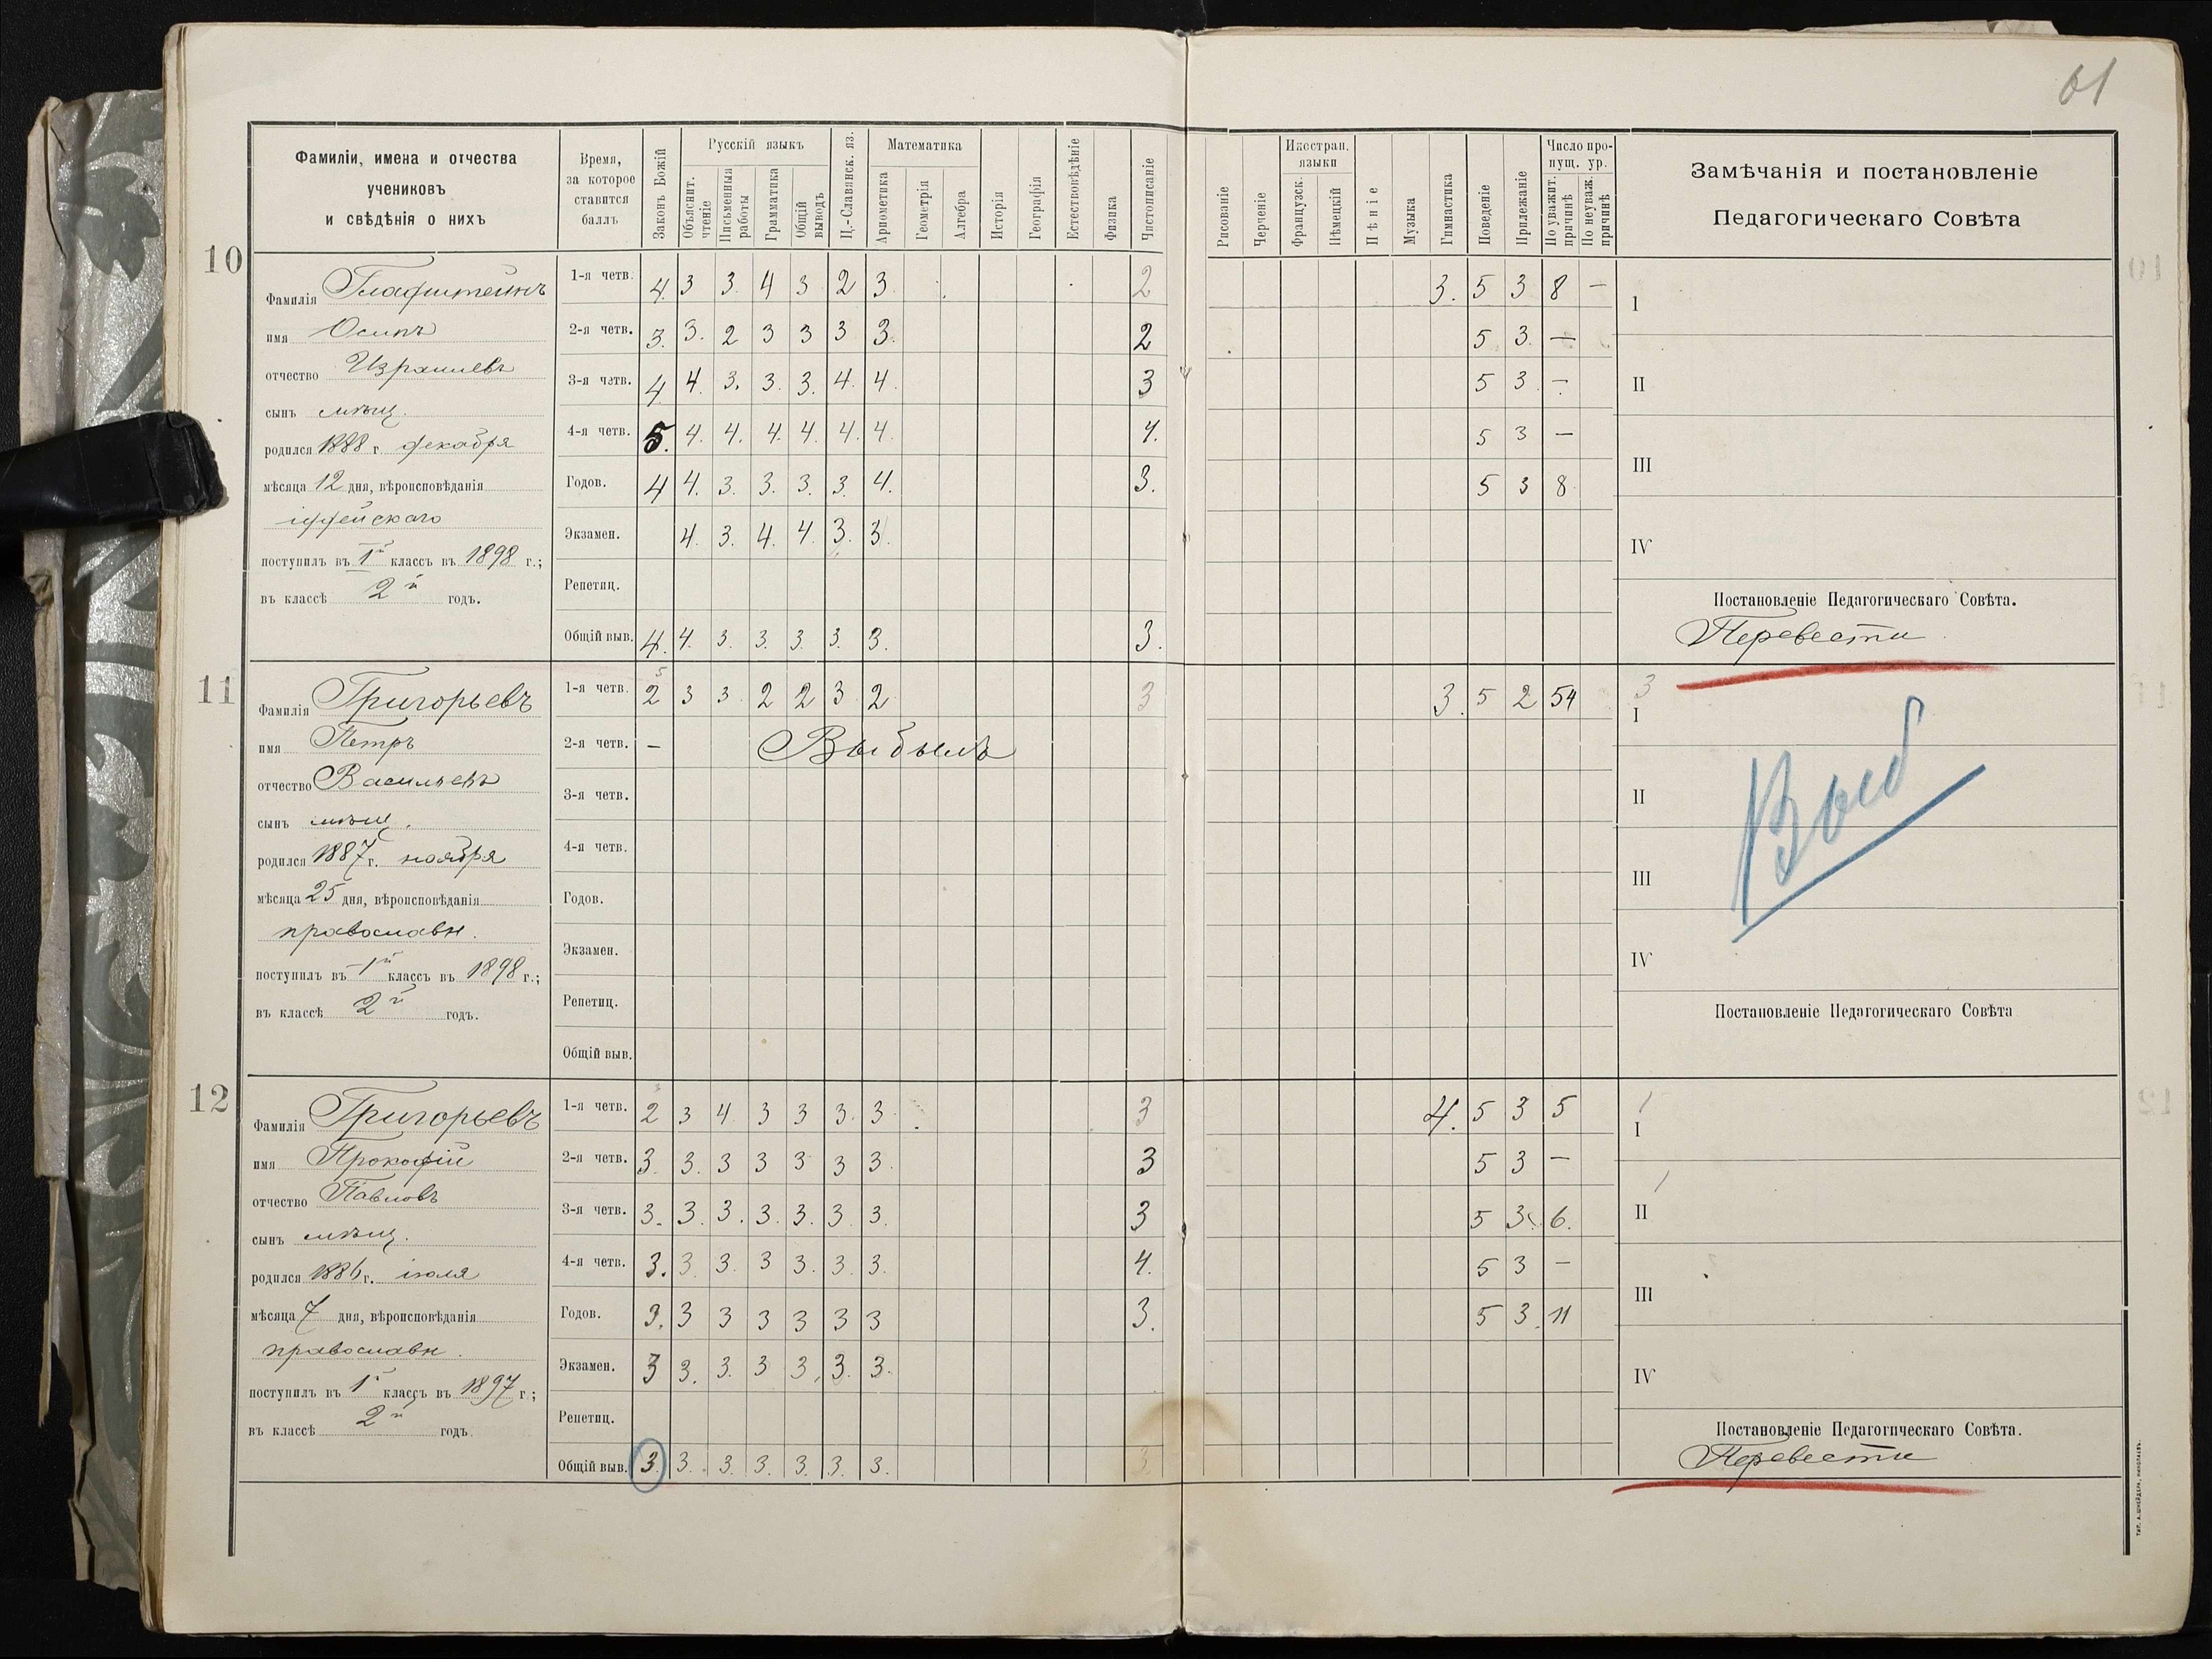 61
Фамиліи, имена и отчества
учениковъ
и свѣдѣнія о нихъ
Время,
за которое
ставится
баллъ
Законъ Божій
Русскій языкъ
Объяснит. чтеніе
Письменныя работы
Грамматика
Общій выводъ
Ц.-Славянск. яз.
Математика
Ариѳметика
Геометрія
Алгебра
Исторія
Географія
Естествовѣдѣніе
Физика
Чистописаніе
Рисованіе
Черченіе
Иностран. языки
Французск.
Нѣмецкій
Пѣніе
Музыка
Гимнастика
Поведеніе
Прилежаніе
Число пропущ. ур.
По уважит. причинѣ
По неуваж. причинѣ
Замѣчанія и постановленіе
Педагогическаго Совѣта
10
Фамилія
имя Осипъ
отчество Израилевъ
сынъ мѣщ.
родился 1888 г. декабря
мѣсяца 12 дня, вѣроисповѣданія
іудейскаго
поступилъ въ 1й классъ въ 1898 г.;
въ классѣ 2й годъ.
1-я четв. 4. 3 3. 4 3 2 3. 2 3. 5 3 8 —
2-я четв. 3. 3. 2 3 3 3 3. 2 5 3. —
3-я четв. 4 4. 3. 3. 3. 4. 4. 3 5 3. —
4-я четв. 5. 4. 4. 4. 4. 4. 4. 4. 5 3 —
Годов. 4 4. 3. 3. 3. 3. 4. 3. 5 3 8
Экзамен. 4. 3. 4. 4. 3. 3.
Репетиц.
Общій выв. 4. 4. 3. 3. 3. 3. 3. 3.
I
II
III
IV
Постановленіе Педагогическаго Совѣта.
Перевести
11
Фамилія Григорьевъ
имя Петръ
отчество Васильевъ
сынъ мѣщ.
родился 1887 г. ноября
мѣсяца 25 дня, вѣроисповѣданія
православн.
поступилъ въ 1й классъ въ 1898 г.;
въ классѣ 2й годъ.
1-я четв. 2 3 3. 2 2 3 2 3 3. 5 2 54
2-я четв. — Выбылъ
3-я четв.
4-я четв.
Годов.
Экзамен.
Репетиц.
Общій выв.
3
I
II
III
IV
Выб
Постановленіе Педагогическаго Совѣта
12
Фамилія Григорьевъ
имя Прокофій
отчество Павловъ
сынъ мѣщ.
родился 1886 г. іюля
мѣсяца 7 дня, вѣроисповѣданія
православн.
поступилъ въ 1й классъ въ 1897 г.;
въ классѣ 2й годъ
1-я четв. 2 3 4 3 3 3. 3 3 4. 5 3 5
2-я четв. 3. 3. 3 3 3 3 3. 3 5 3 —
3-я четв. 3. 3. 3. 3. 3. 3. 3. 3 5 3. 6.
4-я четв. 3. 3. 3. 3 3. 3. 3. 4. 5 3 —
Годов. 3. 3 3 3 3 3 3 3. 5 3. 11
Экзамен. 3 3. 3. 3 3. 3. 3.
Репетиц.
Общій выв. 3. 3. 3. 3. 3. 3. 3. 3.
I
II
III
IV
Постановленіе Педагогическаго Совѣта.
Перевести
ТИП. А. ШНЕЙДЕРА, НИКОЛАЕВЪ.